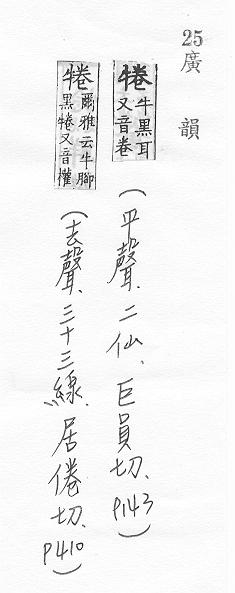 25
廣韻
牛黑耳
又音卷
(平聲、二仙、巨員切、P143)
爾雅云牛腳
黑犈又音權
(去聲、三十三線、居倦切、P410)